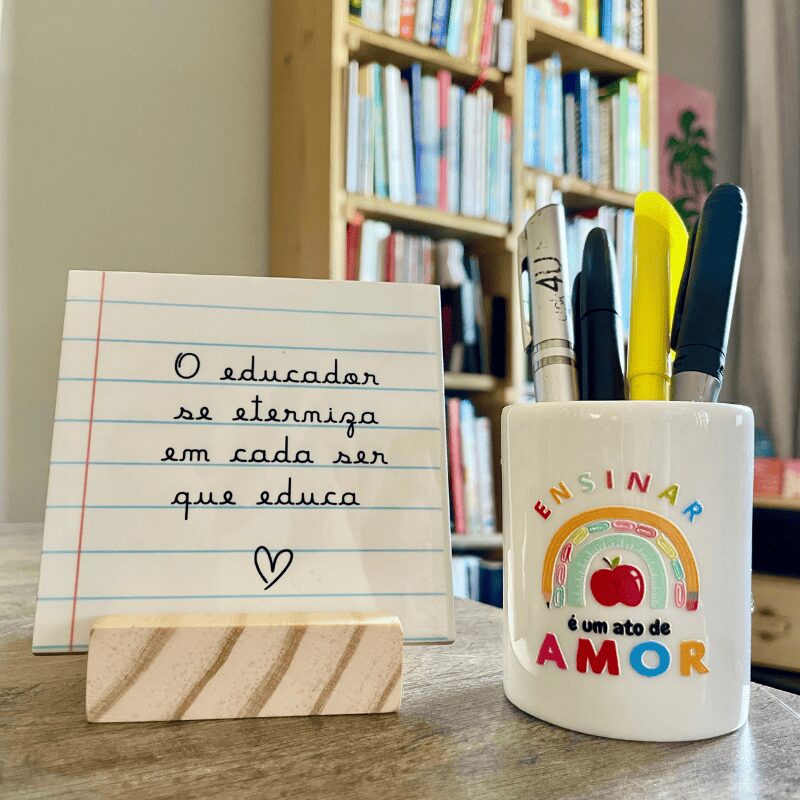 O educador
se eterniza
em cada ser
que educa
ENSINAR
é um ato de
AMOR
4U